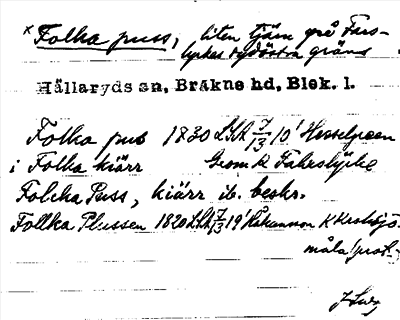 * Folka puss, liten tjärn på Fars-
lyckes sydöstra gräns
Hällaryds sn, Bräkne hd, Blek. l.
Folka pus 1830 LSA 7/13 10' Hesselgreen
i Folka kiärr Geom K Fahrslycke
Folcka Puss, kiärr ib. beskr.
Follka Plussen 1820 LSA 7/13 19' Håkansson K
måla prot.